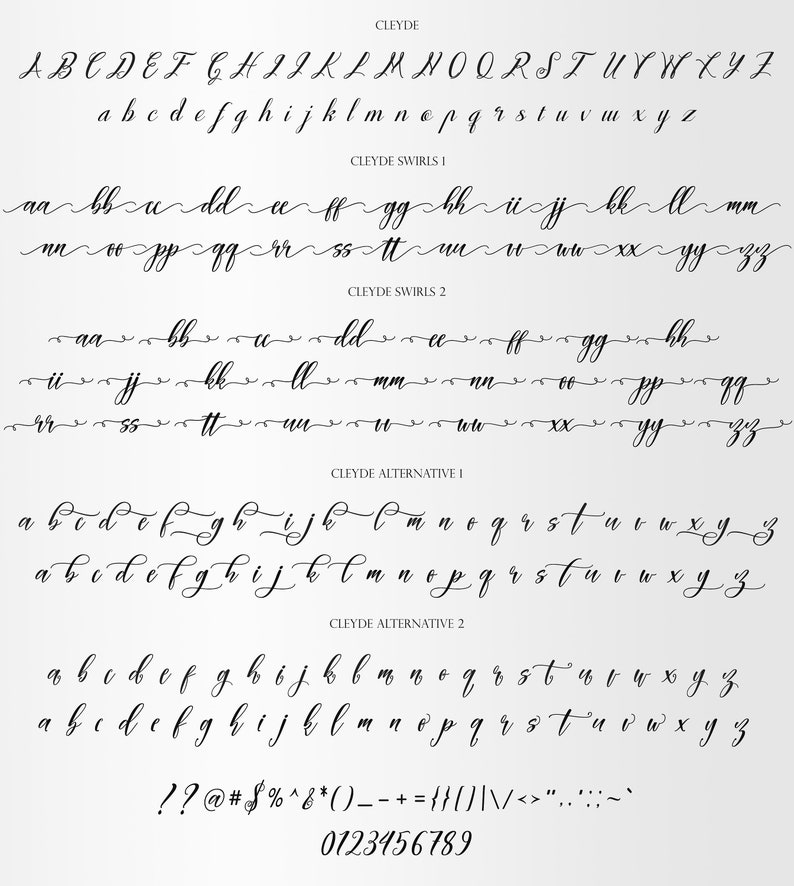 CLEYDE
A B C D E F G H I J K L M N O Q R S T U V W X Y Z
a b c d e f g h i j k l m n o p q r s t u v w x y z
CLEYDE SWIRLS 1
aa bb cc dd ee ff gg hh ii jj kk ll mm
nn oo pp qq rr ss tt uu vv ww xx yy zz
CLEYDE SWIRLS 2
aa bb cc dd ee ff gg hh
ii jj kk ll mm nn oo pp qq
rr ss tt uu vv ww xx yy zz
CLEYDE ALTERNATIVE 1
a b c d e f g h i j k l m n o q r s t u v w x y z
a b c d e f g h i j k l m n o p q r s t u v w x y z
CLEYDE ALTERNATIVE 2
a b c d e f g h i j k l m n o q r s t u v w x y z
a b c d e f g h i j k l m n o p q r s t u v w x y z
! ? @ # $ % ^ & * ( ) _ - + = { } [ ] | \ / < > " , . ' : ; ~ `
0123456789